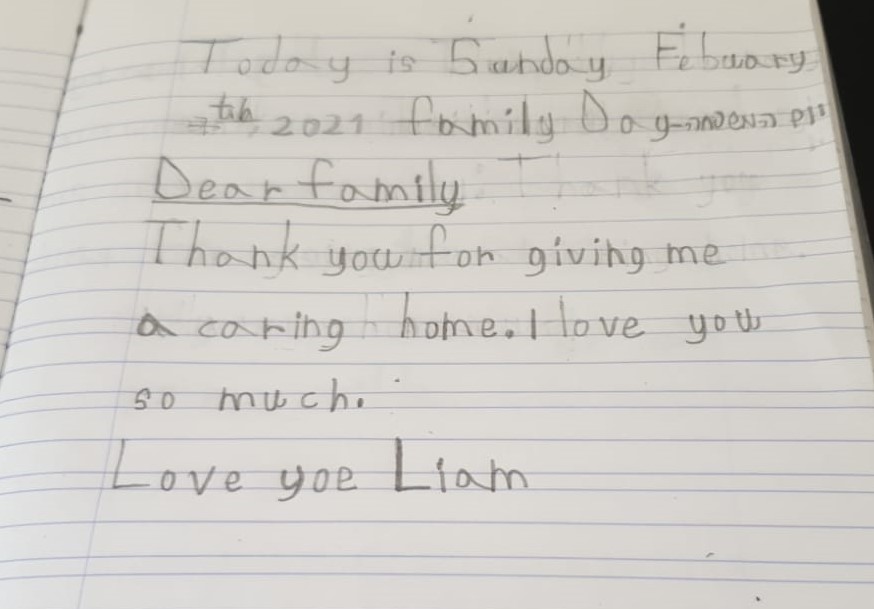 Today is Sunday Febuary
7th 2021 family Day
Dear family
Thank you for giving me
a caring home. I love you
so much.
Love yoe Liam